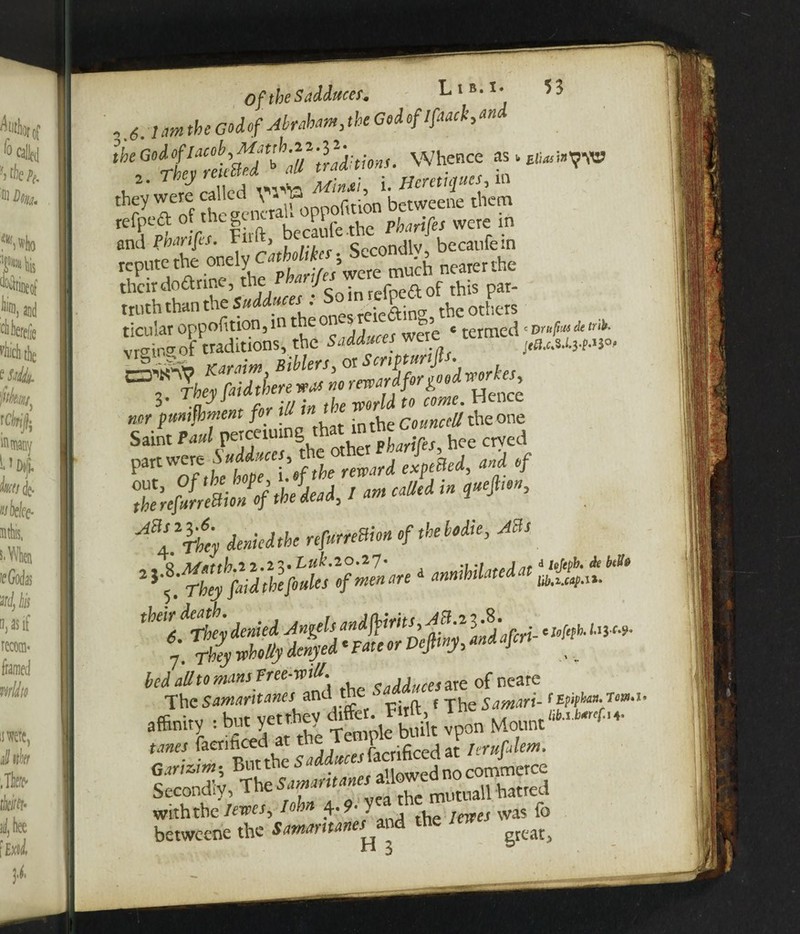 Author of
so called
, the Pe-
in Dosit.
who
his
doctrine of
him, and
ch heresie
which the
e Saddu-
tChrist;
in many
duces de-
belee-
n this,
s. When
e God as
ard, his
n, as if
recom-
framed
world to
s were,
all other
. There-
their er-
id, hee
[Exod.
3.6.
Of the Sadduces. LIB. 1. 53
3.6. I am the God of Abraham, the God of Isaack, and
the God of Iacob, Matth. 22. 32.
2. They reiected ᵇ all traditions. Whence as
they were called מינים Minæi, i. Heretiques, in
respect of the generall opposition betweene them
and Pharises. First, because the Pharises were in
repute the onely Catholikes; Secondly, because in
their doctrine, the Pharises were much nearer the
truth than the Sudduces: So in respect of this par-
ticular opposition, in the ones reiecting, the others
vrging of traditions, the Sadduces were ᶜ termed
קראים Karaim, Biblers, or Scripturists.
3. They said there was no reward for good workes,
nor punishment for ill in the world to come. Hence
Saint Paul perceiuing that in the Councell the one
part were Sudduces, the other Pharises, hee cryed
out, Of the hope, i. of the reward expected, and of
the resurrection of the dead, I am called in question,
Acts 23.6.
4. They denied the resurrection of the bodie, Acts
23.8. Matth. 22.23. Luk. 20.27.
5. They said the soules of men are ᵈ annihilated at
their death.
6. They denied Angels and spirits, Act. 23.8.
7. They wholly denyed ᵉ Fate or Destiny, and ascri-
bed all to mans Free-will.
The Samaritanes and the Sadduces are of neare
affinity : but yet they differ. First, ᶠ The Samari-
tanes sacrificed at the Temple built vpon Mount
Garizim; But the Sadduces sacrificed at Ierusalem.
Secondly, The Samaritanes allowed no commerce
with the Iewes, Iohn 4.9. yea the mutuall hatred
betweene the Samaritanes and the Iewes was so
H 3 great,
ᵇ Elias in
ᶜ Drusius de trib.
sect. c.8. l.3. p.130.
ᵈ Ioseph. de bello
lib. 2. cap. 12.
ᵉ Ioseph. l.13. c.9.
ᶠ Epiphan. Tom. 1.
lib. 1. hæres. 14.